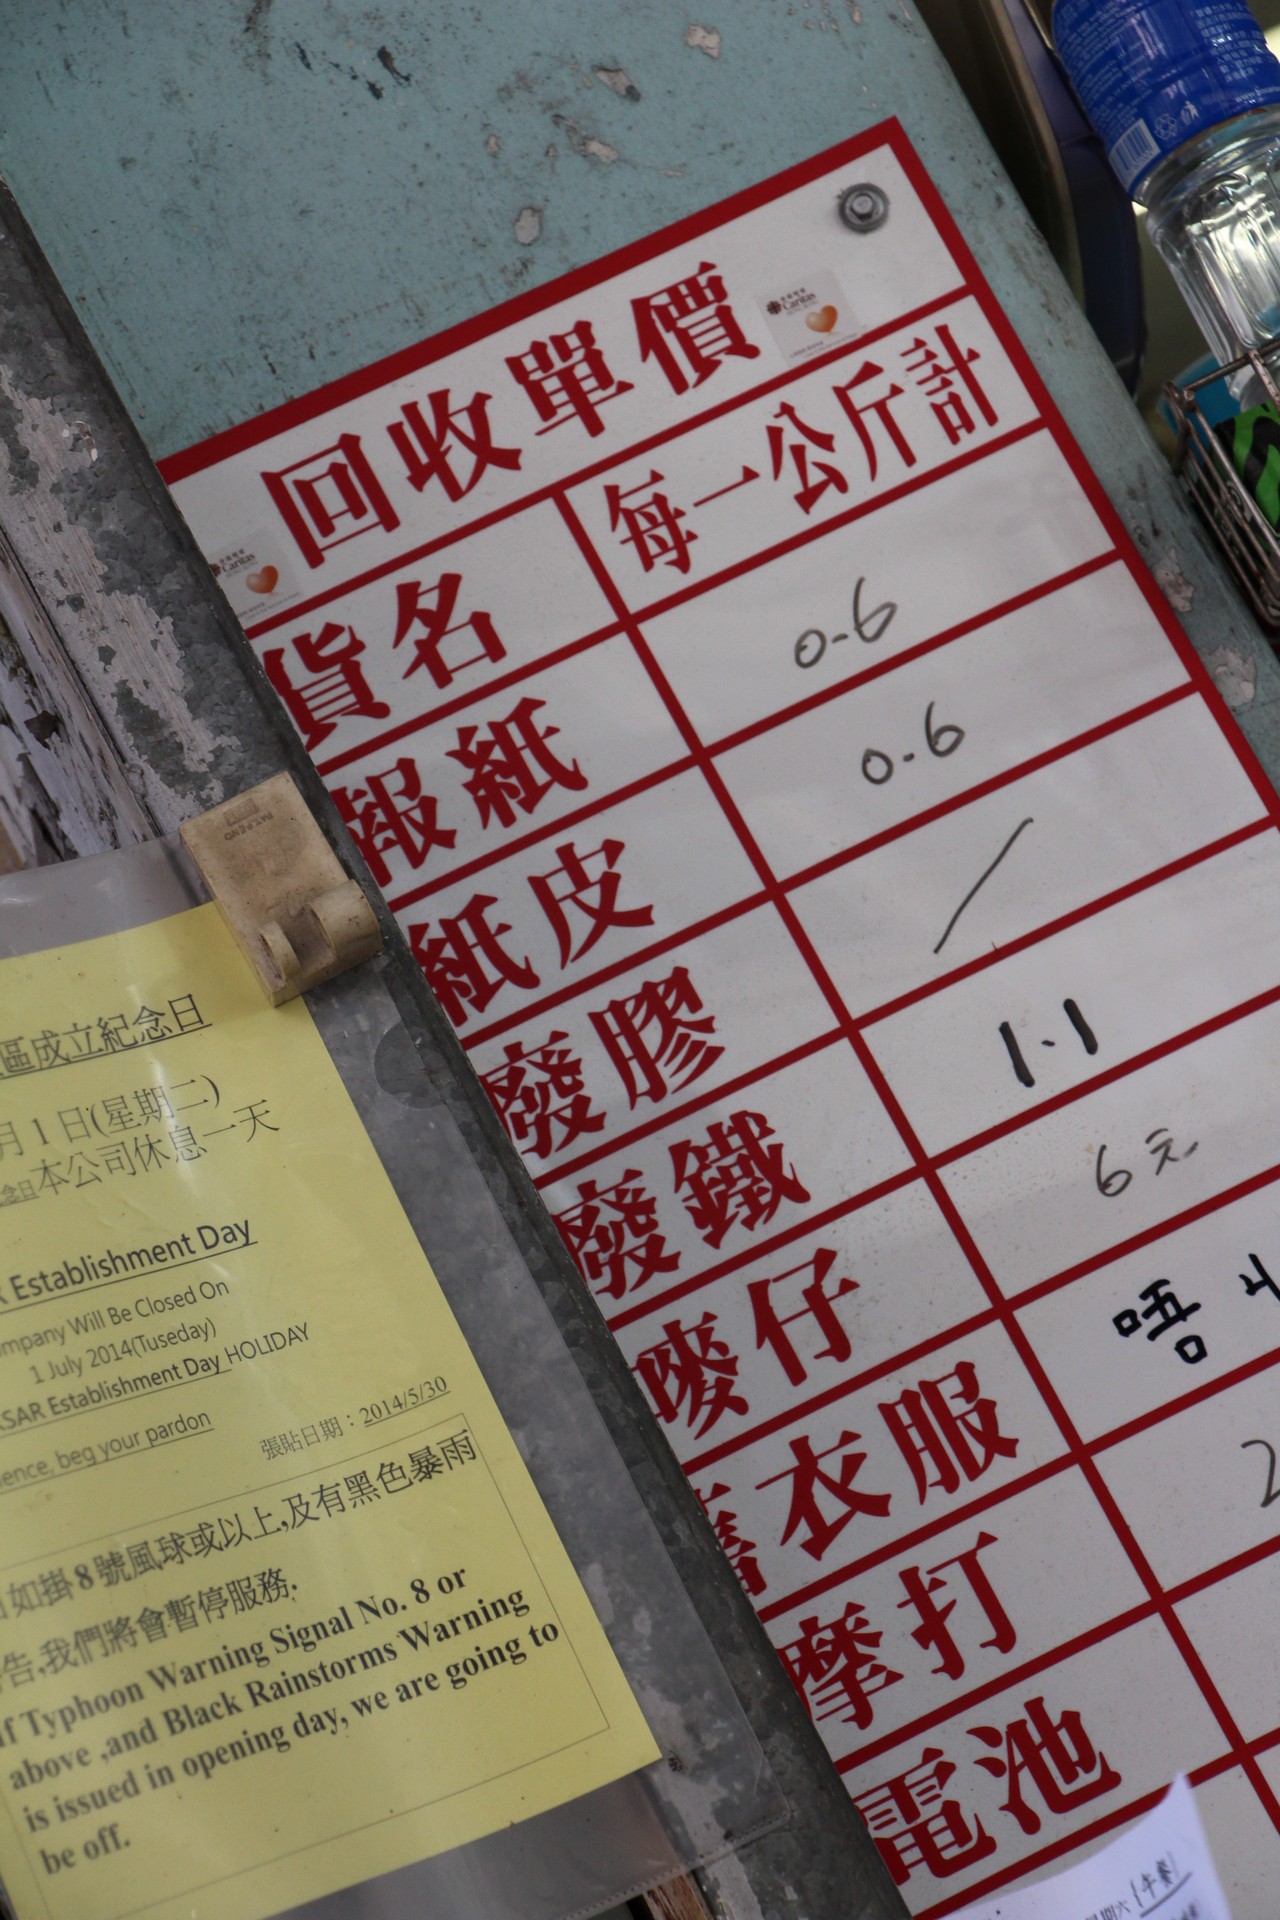 回收單價
Caritas
Caritas
貨名 每一公斤計
報紙 0.6
紙皮 0.6
廢膠 /
廢鐵 1.1
嘜仔 6元
舊衣服 唔
摩打 2
電池
PAT.PEND
區成立紀念日
月1日(星期二)
念日本公司休息一天
R Establishment Day
ompany Will Be Closed On
1 July 2014(Tuseday)
KSAR Establishment Day HOLIDAY
ience, beg your pardon
張貼日期：2014/5/30
如掛8號風球或以上,及有黑色暴雨
告,我們將會暫停服務.
If Typhoon Warning Signal No. 8 or
above ,and Black Rainstorms Warning
is issued in opening day, we are going to
be off.
期六 午餐